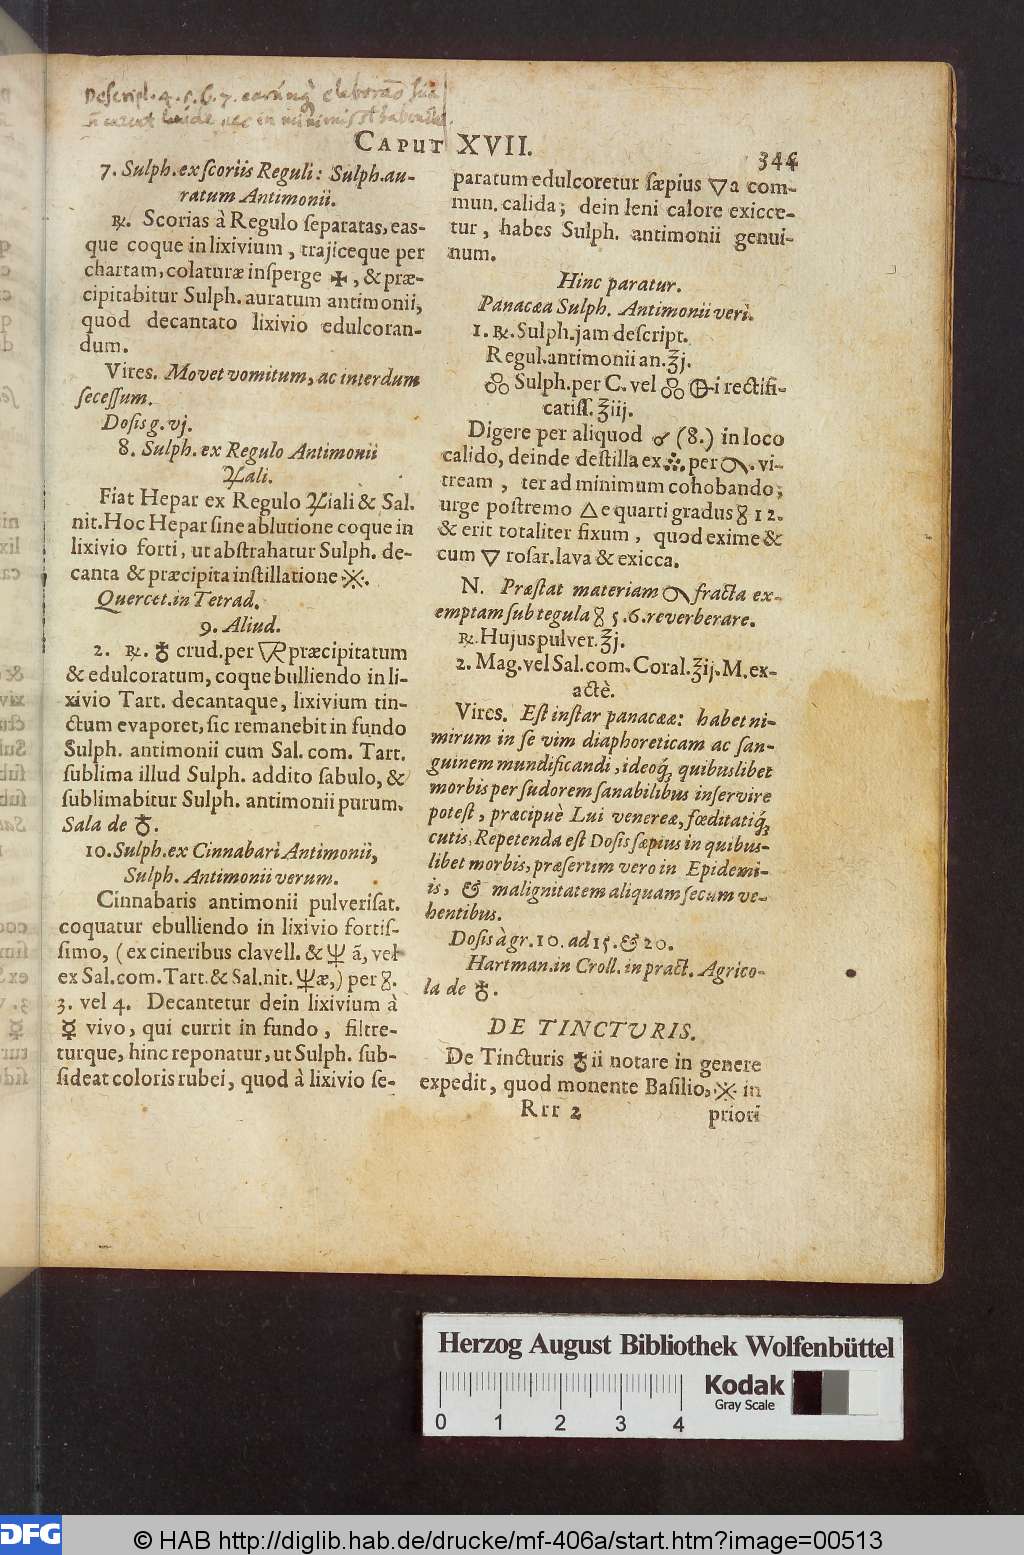 Descript. 4. 5. 6. 7.
CAPUT XVII.
344
7. Sulph. ex ſcoriis Reguli: Sulph. au-
ratum Antimonii.
℞. Scorias à Regulo ſeparatas, eas-
que coque in lixivium, trajiceque per
chartam, colaturæ inſperge 🜊, & præ-
cipitabitur Sulph. auratum antimonii,
quod decantato lixivio edulcoran-
dum.
Vires. Movet vomitum, ac interdum
ſeceſſum.
Doſis g. vj.
8. Sulph. ex Regulo Antimonii
♃ali.
Fiat Hepar ex Regulo ♃iali & Sal.
nit. Hoc Hepar ſine ablutione coque in
lixivio forti, ut abſtrahatur Sulph. de-
canta & præcipita inſtillatione ※.
Quercet. in Tetrad.
9. Aliud.
2. ℞. ♁ crud. per 🜆 præcipitatum
& edulcoratum, coque bulliendo in li-
xivio Tart. decantaque, lixivium tin-
ctum evaporet, ſic remanebit in fundo
Sulph. antimonii cum Sal. com. Tart.
ſublima illud Sulph. addito ſabulo, &
ſublimabitur Sulph. antimonii purum.
Sala de ♁.
10. Sulph. ex Cinnabari Antimonii,
Sulph. Antimonii verum.
Cinnabaris antimonii pulveriſat.
coquatur ebulliendo in lixivio fortiſ-
ſimo, (ex cineribus clavell. & 🜿 ã, vel
ex Sal. com. Tart. & Sal. nit. 🜿æ,) per 🝮.
3. vel 4. Decantetur dein lixivium à
☿ vivo, qui currit in fundo, filtre-
turque, hinc reponatur, ut Sulph. ſub-
ſideat coloris rubei, quod à lixivio ſe-
paratum edulcoretur ſæpius ▽a com-
mun. calida; dein leni calore exicce-
tur, habes Sulph. antimonii genui-
num.
Hinc paratur.
Panacæa Sulph. Antimonii veri.
1. ℞. Sulph. jam deſcript.
Regul. antimonii an. ℥j.
Sulph. per C. vel 🜕i rectifi-
catiſſ. ℥iij.
Digere per aliquod ☌ (8.) in loco
calido, deinde deſtilla ex ∴. per . vi-
tream, ter ad minimum cohobando;
urge poſtremo △e quarti gradus 🝮 12.
& erit totaliter fixum, quod exime &
cum ▽ roſar. lava & exicca.
N. Præſtat materiam fracta ex-
emptam ſub tegula 🝮 5. 6. reverberare.
℞. Hujus pulver. ℥j.
2. Mag. vel Sal. com. Coral. ℥ij. M. ex-
actè.
Vires. Eſt inſtar panacææ: habet ni-
mirum in ſe vim diaphoreticam ac ſan-
guinem mundificandi, ideoq́; quibuslibet
morbis per ſudorem ſanabilibus inſervire
poteſt, præcipuè Lui venereæ, fœditatiq́;
cutis, Repetenda eſt Doſis ſæpius in quibus-
libet morbis, præſertim vero in Epidemi-
is, & malignitatem aliquam ſecum ve-
hentibus.
Doſis à gr. 10. ad 15. & 20.
Hartman. in Croll. in pract. Agrico-
la de ♁.
DE TINCTURIS.
De Tincturis ♁ii notare in genere
expedit, quod monente Baſilio, ※ in
Rrr 2
priori
Herzog August Bibliothek Wolfenbüttel
0 1 2 3 4
Kodak
Gray Scale
DFG
© HAB http://diglib.hab.de/drucke/mf-406a/start.htm?image=00513